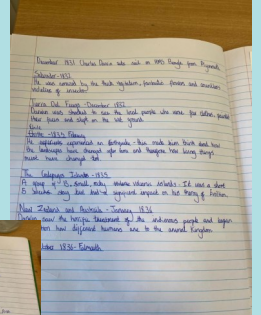 December 1831 Charles Darwin sets out on HMS Beagle from Plymouth
Salvador - 1832
He was amazed by the thick vegetation, particular flowers and
varieties of
Tierra Del Fuego - December 1832
Darwin was shocked to see the local people who wore few clothes, painted
their faces and slept on the wet ground.
Chile
- 1835 February
He experienced an Earthquake - this made him think about how
the landscapes have changed over time and therefore how living things
must have changed too.
The Galapagos Islands - 1835
A group of 13 small, rocky volcanic islands. It was a short
5 weeks stay but had a significant impact on his theory of
New Zealand and Australia - January 1836
Darwin saw the horrific treatment of the indigenous people and began
how different humans are to the animal kingdom.
1836 - Falmouth